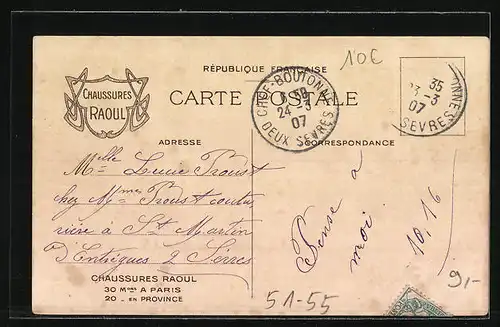 RÉPUBLIQUE FRANÇAISE
10€
CHAUSSURES
RAOUL
CARTE POSTALE
CHEF-BOUTONNE
24 - 3
07
DEUX SEVRES
35
3 - 3
07
SEVRES
ADRESSE
CORRESPONDANCE
Mlle Proust
chez Mme Proust coutu
rière à St Martin
d'Entrigues 2 Sèvres
Pense à
moi
10,16
CHAUSSURES RAOUL
30 Mons A PARIS
20 - EN PROVINCE
51-55
9,-